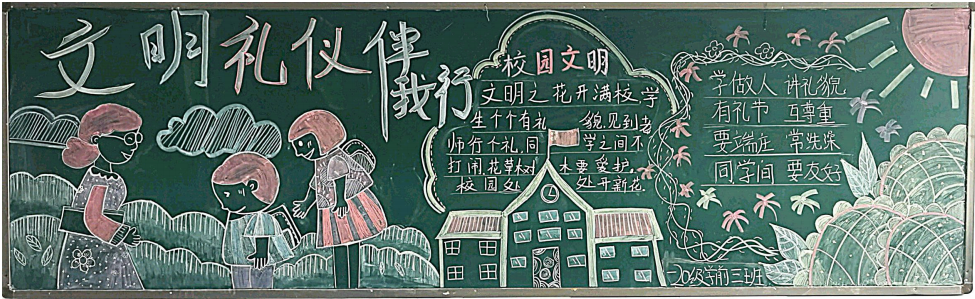 文明礼仪伴我行
校园文明
文明之花开满校,学
生个个有礼貌,见到老
师行个礼,同学之间不
打闹,花草树木要爱护,
校园处处开新花
学做人 讲礼貌
有礼节 互尊重
要端庄 常洗澡
同学间 要友好
20级学前三班